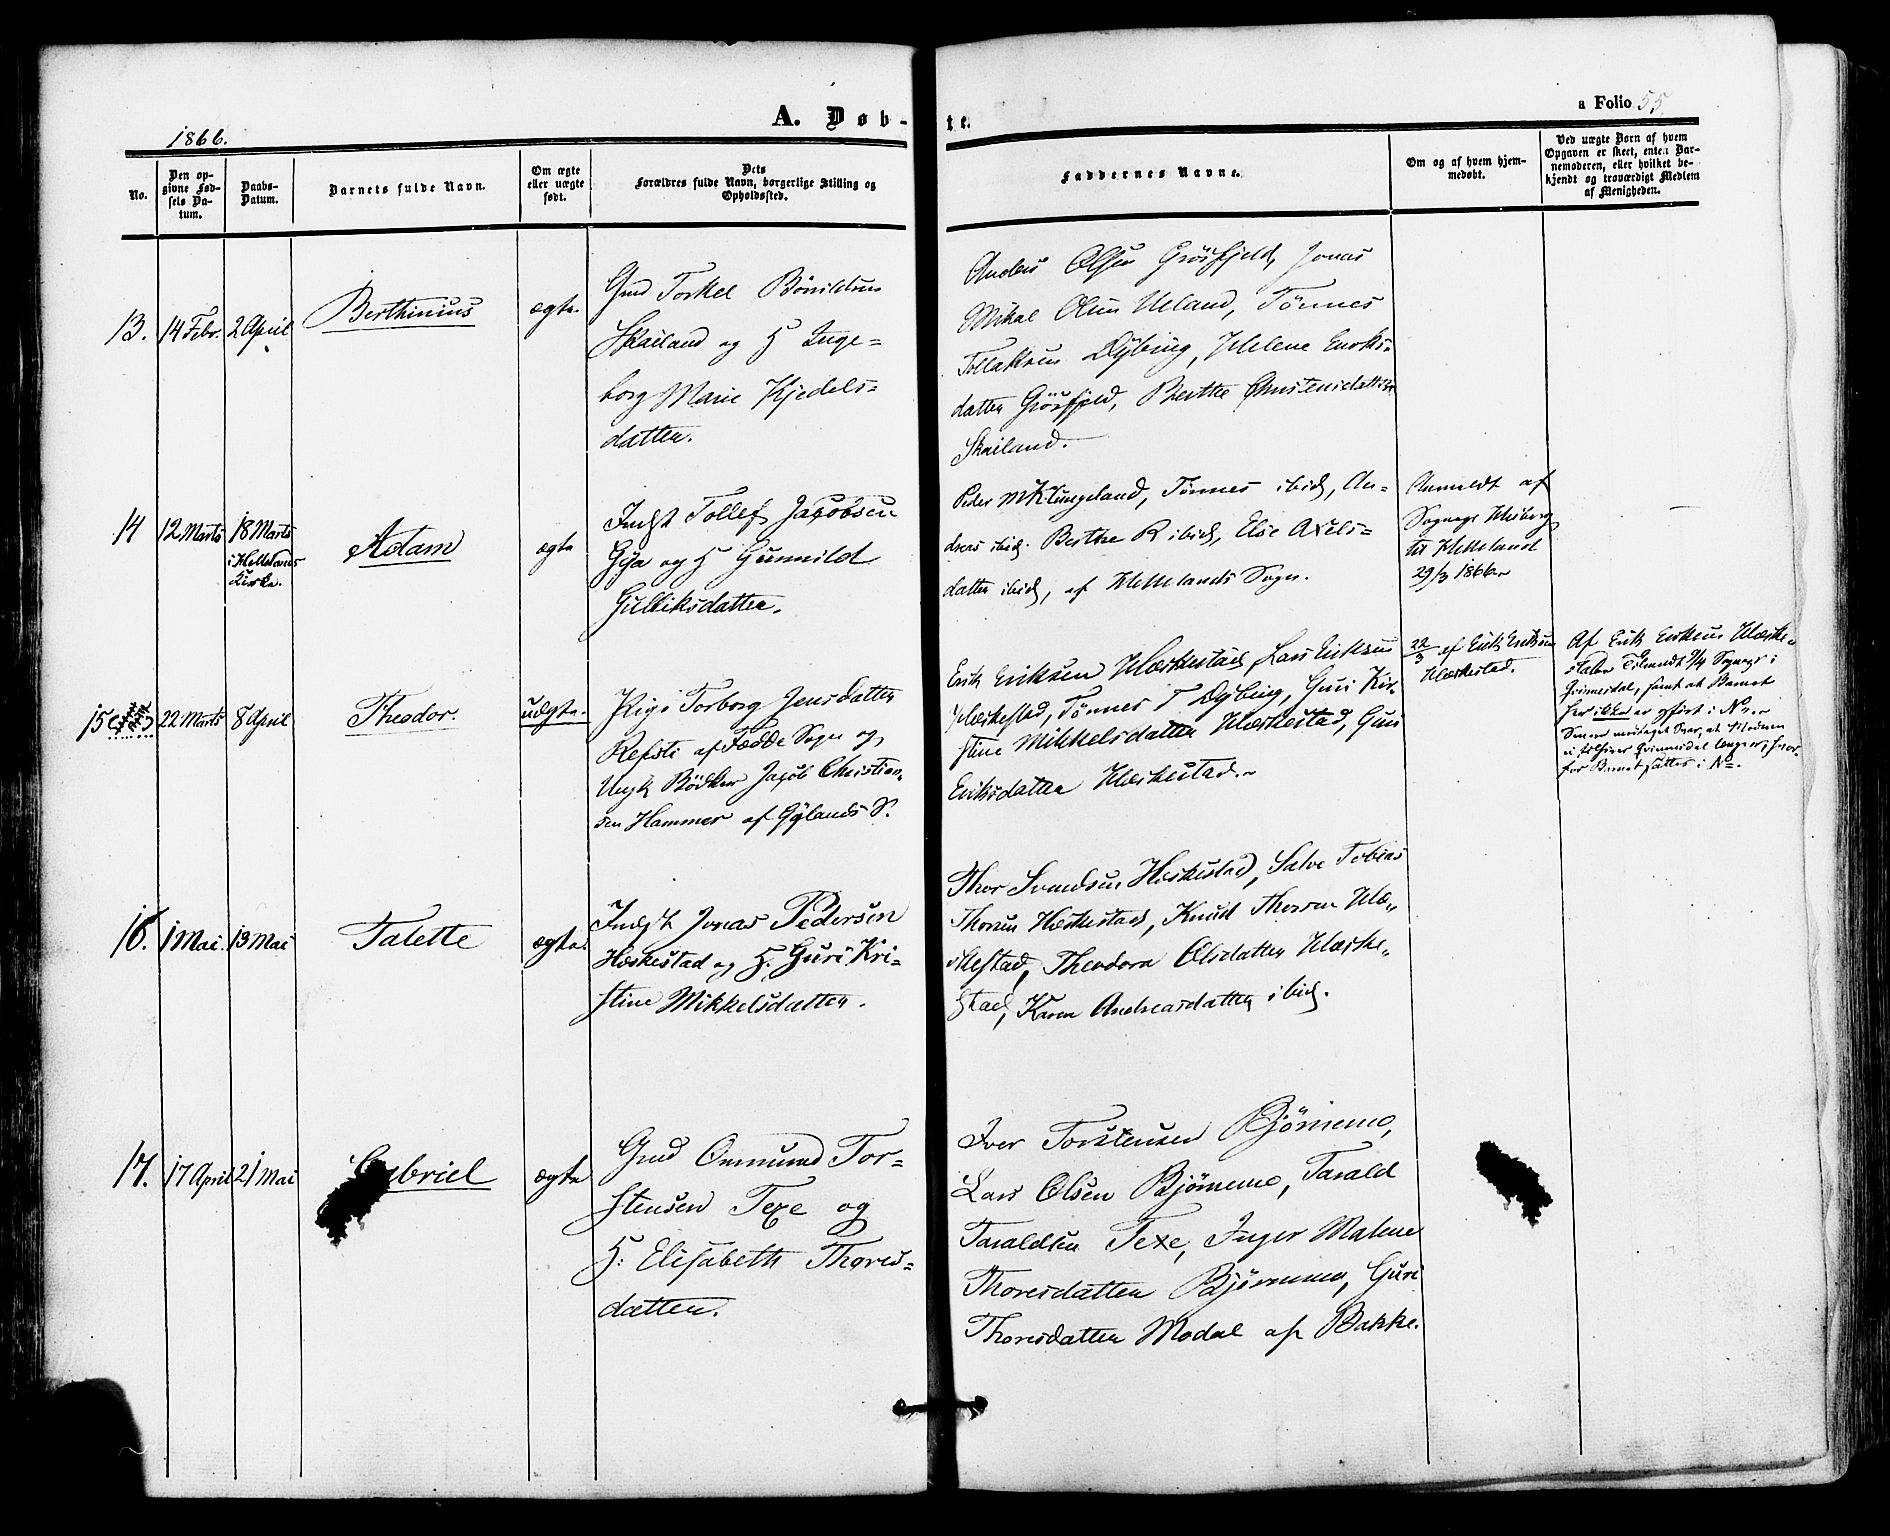 1866.
A. Døb-
te.
a Folio 55
No.
Den op-
givne Fød-
sels Da-
tum.
Daabs-
Datum.
Barnets fulde Navn.
Om ægte
eller uægte
født.
Dets
Forældres fulde Navn, borgerlige Stilling og
Opholdssted.
Faddernes Navne.
Om og af hvem hjem-
medøbt.
Ved uægte Børn af hvem
Opgaven er skeet, enten Bar-
nemoderen, eller hvilket be-
kjendt og troværdigt Medlem
af Menigheden.
13.
14 Febr.
2 April
Berthinius
ægte.
Gmd Torkel
Skailand og H Inge-
borg Marie Kjedels-
datter.
Anders Olsen Grösfjeld, Jonas
Mikal Olsen Ueland, Tönnes
Tollaksen Dybing, Helene Enoks-
datter Grösfjeld, Berthe Christensdatter
Skailand.
14
12 Marts
18 Marts
i Hellelands
Kirke.
Adam
ægte
Indst Tollef Jacobsen
Gya og H Gunnild
Gulliksdatter.
Peder M Klungeland, Tönnes ibid, An-
dreas ibid. Berthe R ibid, Else Axels-
datter ibid, af Hellelands Sogn.
Anmeldt af
Sogнepr
til Helleland
29/3 1866
15
22 Marts
8 April
Theodor.
uægte.
Pige Torborg Jensdatter
Refsti af Fædde Sogn og
Ungk Bödker Jacob Christian-
sen Hammer af Gylands S.
Erik Eriksen Hæskestad, Lars Eriksen
Hæskestad, Tönnes T Dybing, Guri Kir-
stine Mikkelsdatter Hæskestad, Guri
Eriksdatter Hæskestad.
22/3 af Erik Eriksen
Hæskestad.
Af Erik Eriksen Hæske-
stad. Tilmeldt 9/4 Sognepr i
Qvinesdal, samt at Barnet
her ikke er opført i No.
Senere modtaget Svar, at Moderen
ei tilhører Qvinesdal længer, hvor-
for Barnet sættes i No.
16.
1 Mai.
13 Mai
Talette
ægte.
Indst Jonas Pedersen
Hæskestad og H. Guri Kri-
stine Mikkelsdatter.
Thor Svendsen Hæskestad, Salve Tobias
Thorsen Hæskestad, Knud Thorsen Hæ-
skestad, Theodora Olsdatter Hæske-
stad, Karen Andreasdatter ibid.
17.
17 April
21 Mai
Gabriel
ægte
Gmd Ommund Tor-
stensen Texe og
H. Elisabeth Thores-
datter.
Iver Torstensen Bjönemo,
Lars Olsen Bjönemo, Tarald
Taraldsen Texe, Inger Malene
Thoresdatter Bjönemo, Guri
Thoresdatter Modal af Bakke.